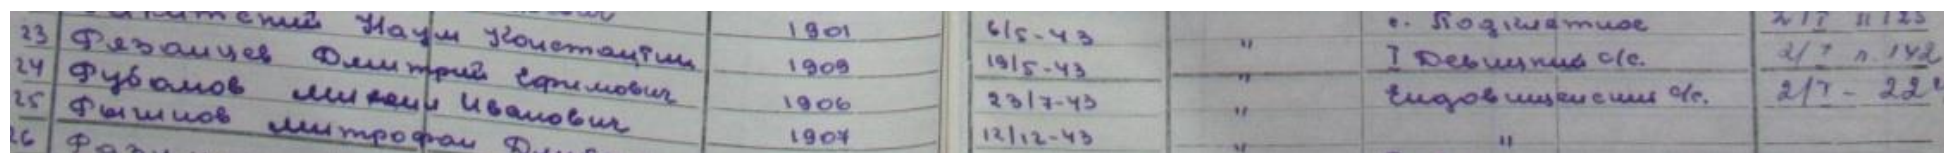 Наум Константин 1901 6/5-43 " с. Подклетное 2/I п 123
23 Рязанцев Дмитрий Ефимович 1909 19/5-43 " I Девицкий с/с. 2/I п. 142
24 Рубанов Михаил Иванович 1906 23/7-43 " Ендовищенский с/с. 2/I - 22
25 Рышков Митрофан 1907 12/12-43 " "
26